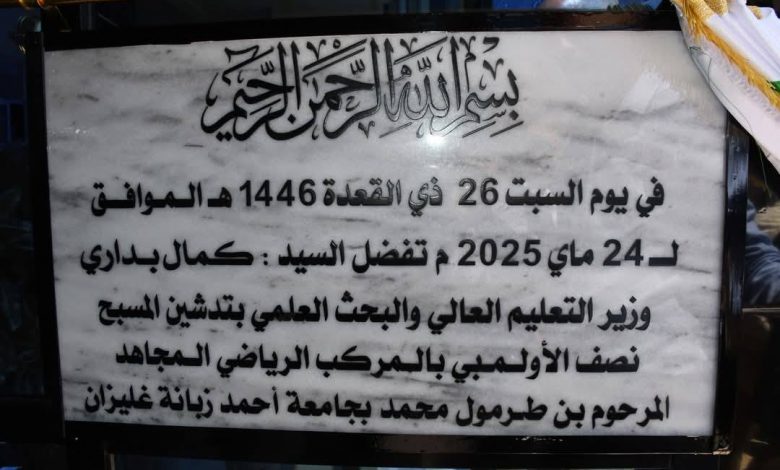 بسم الله الرحمن الرحيم
في يوم السبت 26 ذي القعدة 1446 هـ الموافق
لـ 24 ماي 2025 م تفضل السيد : كمال بداري
وزير التعليم العالي والبحث العلمي بتدشين المسبح
نصف الأولمبي بالمركب الرياضي المجاهد
المرحوم بن طرمول محمد بجامعة أحمد زبانة غليزان